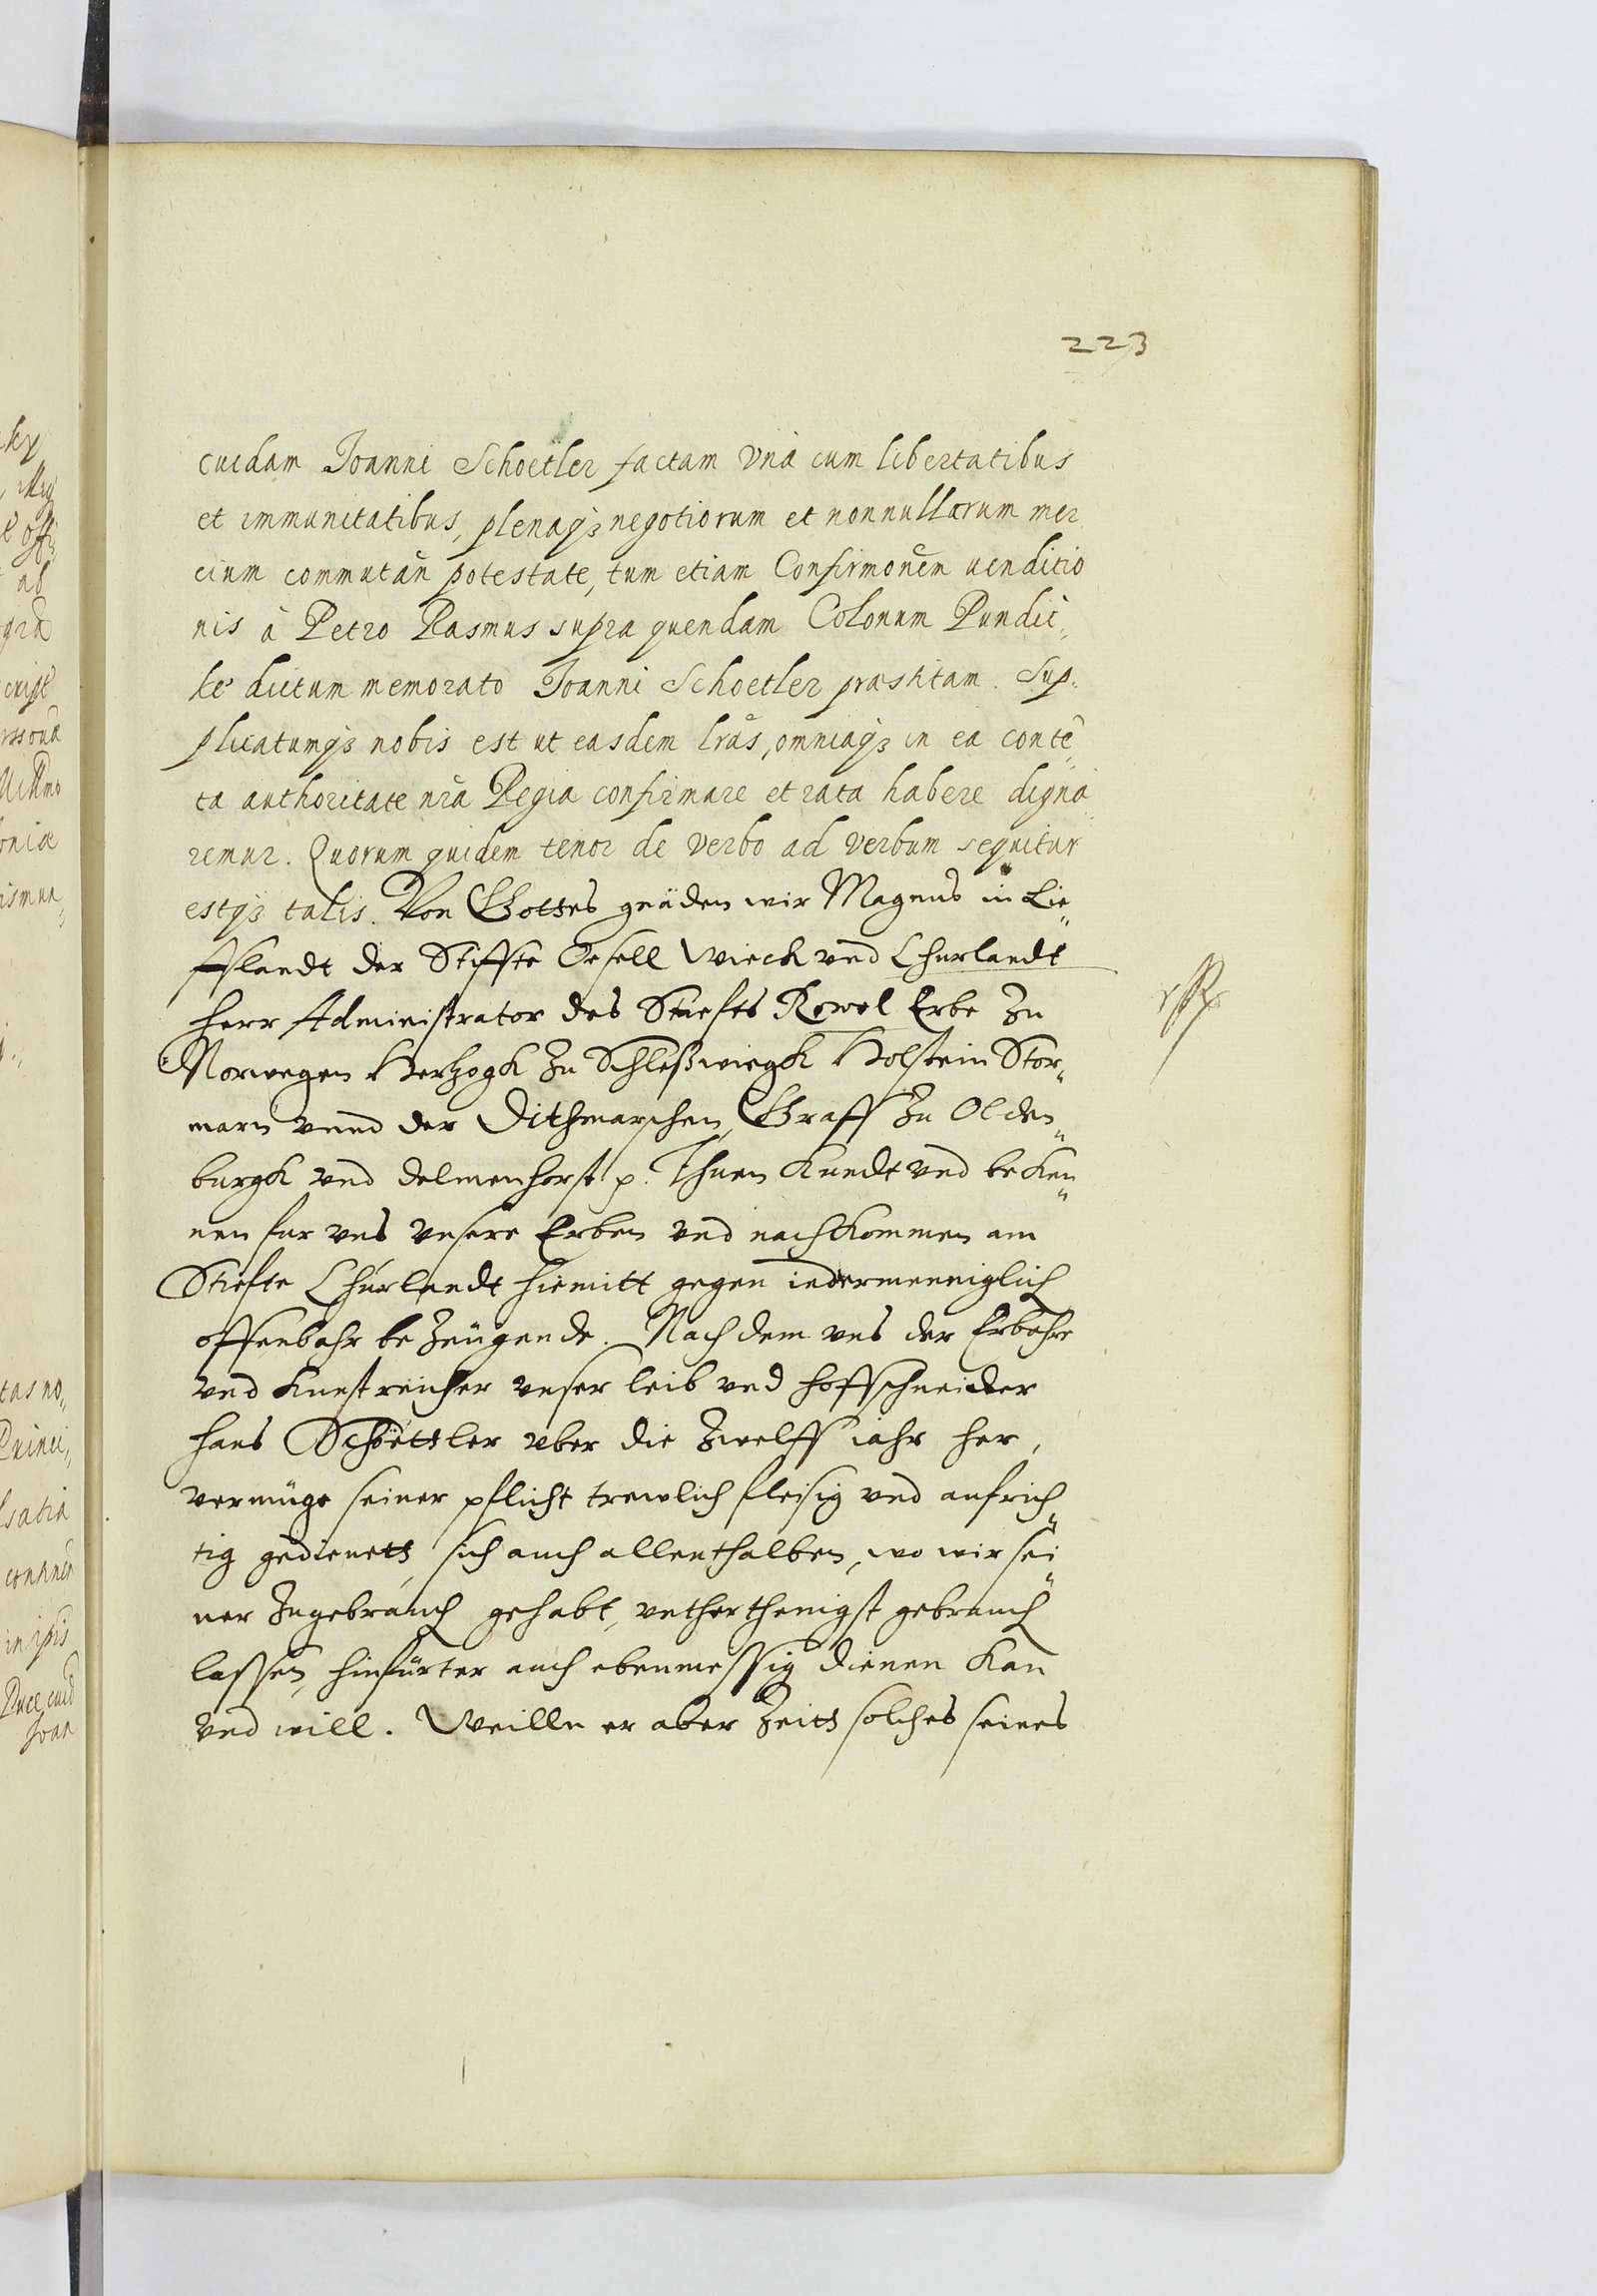 223
cuidam Joanni Schoetler factam vna cum libertatibus
et immunitatibus, plenaqꝫ negotiorum et nonnullorum mer
cium commutan̄ potestate, tum etiam Confirmoñem uenditio
nis à Petro Rasmus supra quendam Colonum Pundic„
ke dictum memorato Joanni Schoetler præstitam. Sup„
plicatumqꝫ nobis est ut easdem lrãs, omniaqꝫ in ea contẽ„
ta authoritate nr̃a Regia confirmare et rata habere digna„
remur. Quorum quidem tenor de verbo ad verbum sequitur
estqꝫ talis. Von Gottes gnaden wir Magnus in Lie„
fflandt der Stiffte Oesell Wieck vnd Churlandt
Herr Administrator des Stiefts Revel Erbe zu
Norwegen Hertzogk zu Schleßwiegk Holstein Stor„
marn vnnd der Dithmarschen, Graff zu Olden„
burgk vnd Delmenhorst p. Thuen Kundt vnd beken„
nen fur vns vnsere Erben vnd nachkommen am
Stiefte Churlandt hiemitt gegen iedermenniglich
offenbahr bezeugende. Nachdem vns der Erbahre
vnd Kunstreicher vnser leib vnd hoffschneider
Hans Schöettler vber die zwelff iahr her,
vermüge seiner pflicht trewlich fleisig vnd aufrich„
tig gedienett, sich auch allenthalben, wo wir sei„
ner zugebrauch gehabt, vntherthenigst gebrauch
lassen, hinfürter auch ebenmessig dienen kan
vnd will. Weilln er aber Zeitt solches seines
tas no„
Princi„
in ipsis